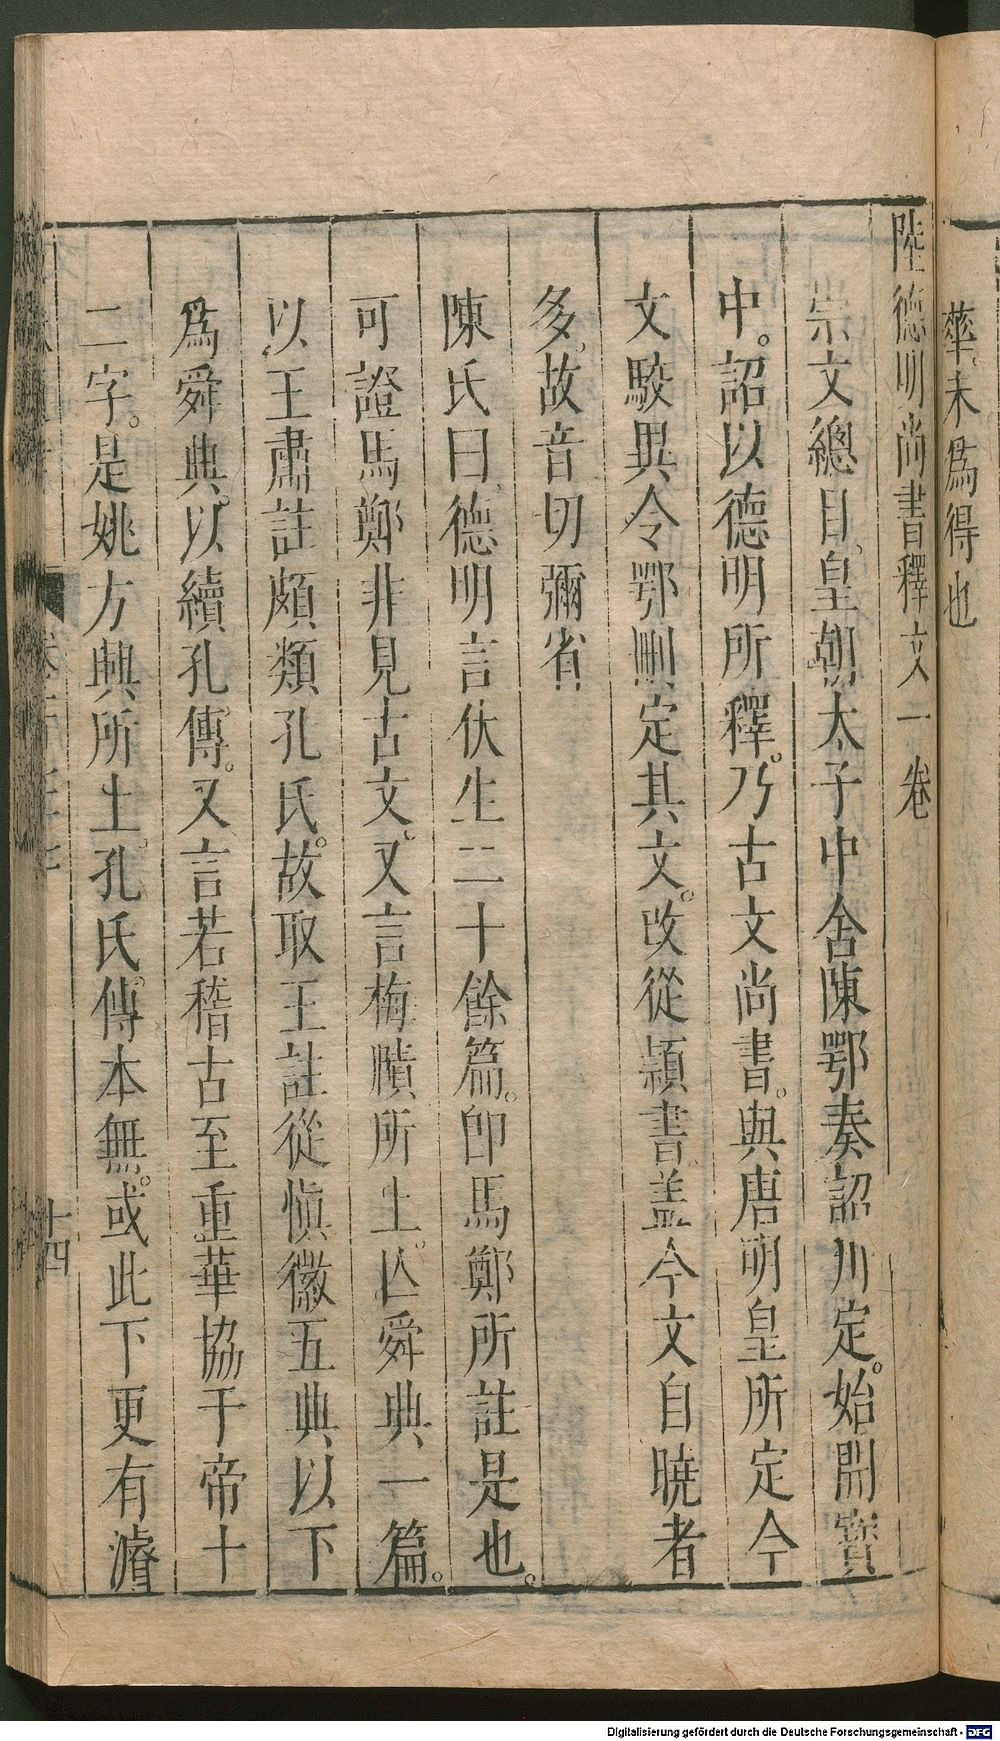 華未爲得也
陸德明尚書釋文一卷
崇文總目皇朝太子中舍陳鄂奏詔刊定。始開寶
中。詔以德明所釋。乃古文尚書。與唐明皇所定今
文駮異令鄂刪定其文。改從頴書。盖今文自曉者
多。故音切彌省
陳氏曰德明言伏生二十餘篇。卽馬鄭所註是也。
可證馬鄭非見古文。又言梅賾所上。亾舜典一篇。
以王肅註頗類孔氏。故取王註從愼徽五典以下
爲舜典。以續孔傳。又言若稽古至重華協于帝十
二字。是姚方興所上。孔氏傳本無。或此下更有濬
十四
Digitalisierung gefördert durch die Deutsche Forschungsgemeinschaft - DFG